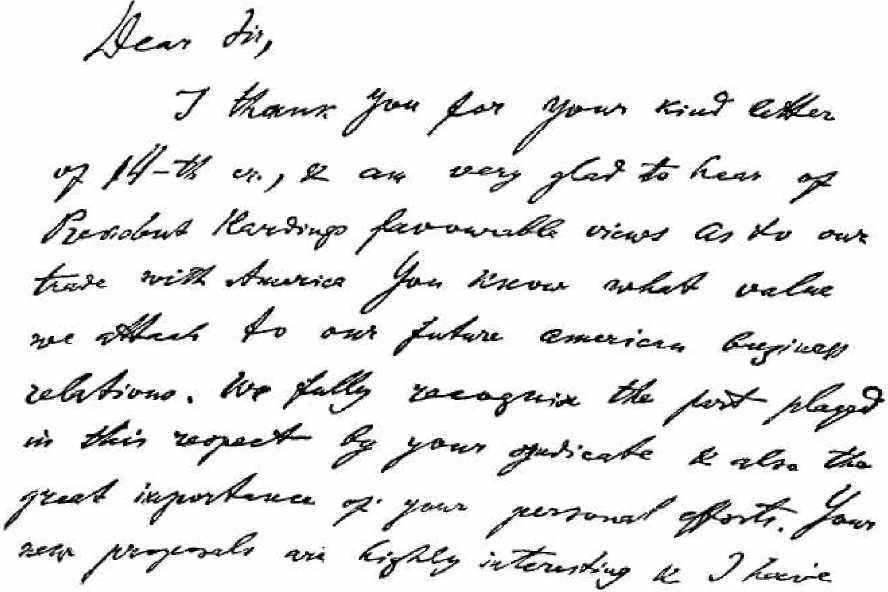 Dear Sir,
I thank you for your kind letter
of 14-th cr., & am very glad to hear of
President Hardings favourable views as to our
trade with America You know what value
we attach to our future american business
relations. We fully recognize the part played
in this respect by your syndicate & also the
great importance of your personal efforts. Your
new proposals are highly interesting & I have